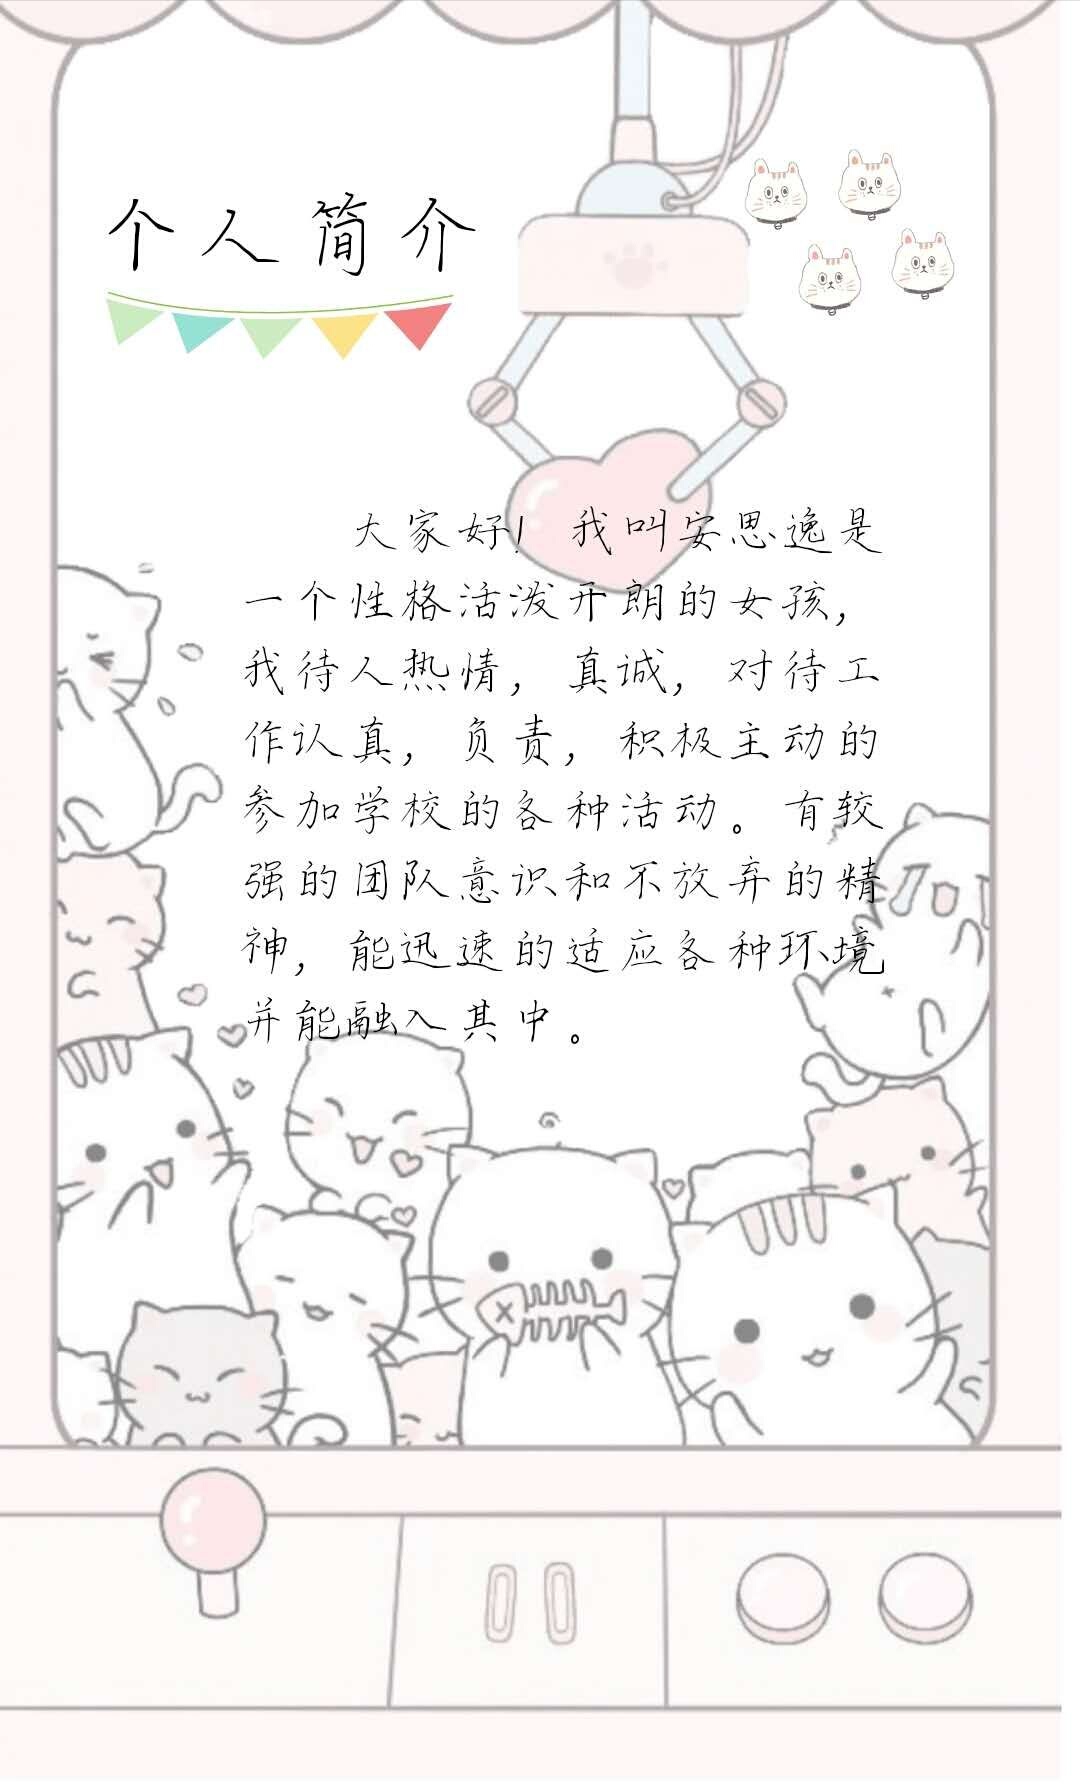 个人简介
大家好！我叫安思逸是
一个性格活泼开朗的女孩，
我待人热情，真诚，对待工
作认真，负责，积极主动的
参加学校的各种活动。有较
强的团队意识和不放弃的精
神，能迅速的适应各种环境
并能融入其中。